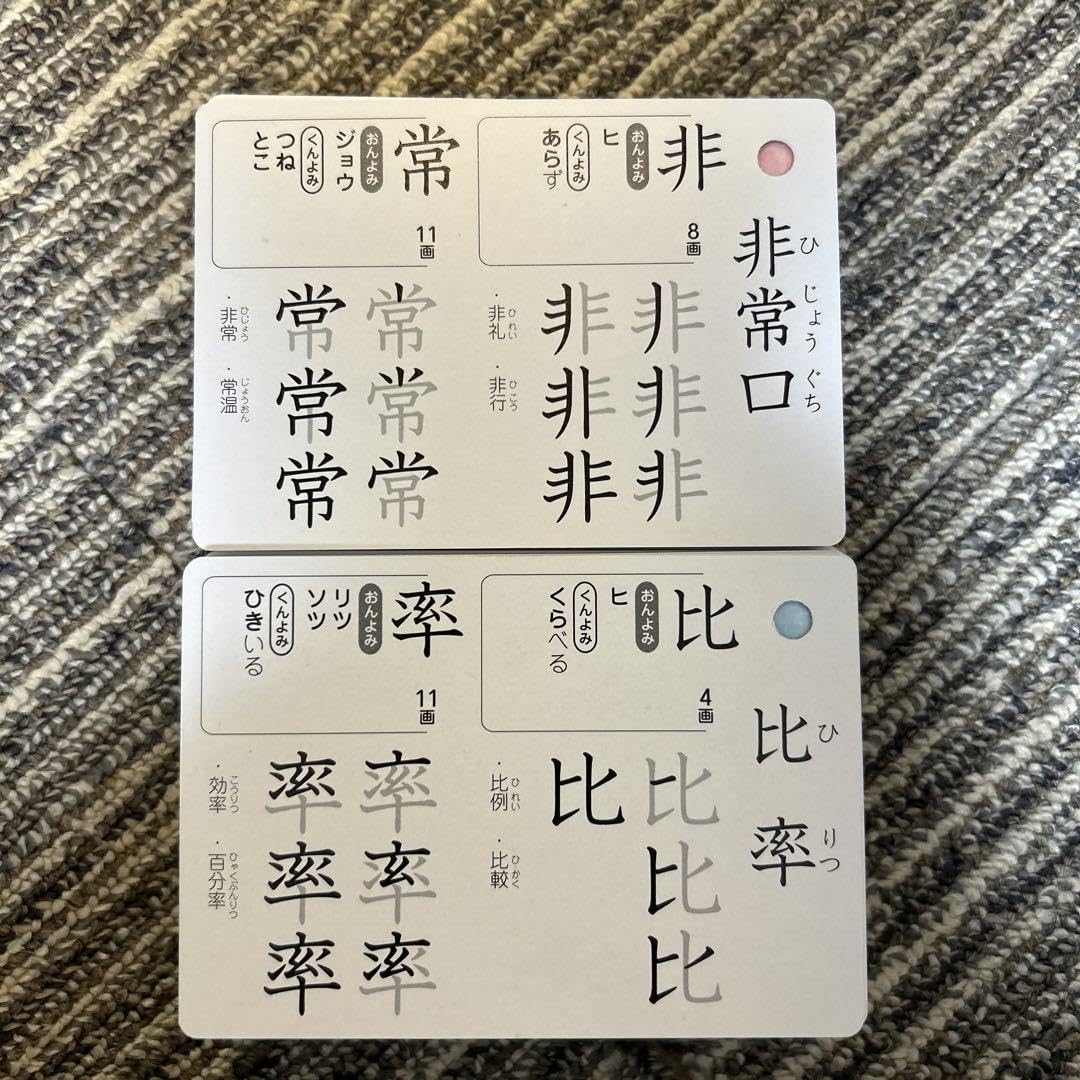 非常口
ひじょうぐち
非
おんよみ
ヒ
くんよみ
あらず
8画
非 非
非 非
非 非
・非礼 ・非行
ひれい ひこう
常
おんよみ
ジョウ
くんよみ
つね
とこ
11画
常 常
常 常
常 常
・非常 ・常温
ひじょう じょうおん
比率
ひりつ
比
おんよみ
ヒ
くんよみ
くらべる
4画
比 比
比
比
・比例 ・比較
ひれい ひかく
率
おんよみ
リツ
ソツ
くんよみ
ひきいる
11画
率 率
率 率
率 率
・効率 ・百分率
こうりつ ひゃくぶんりつ